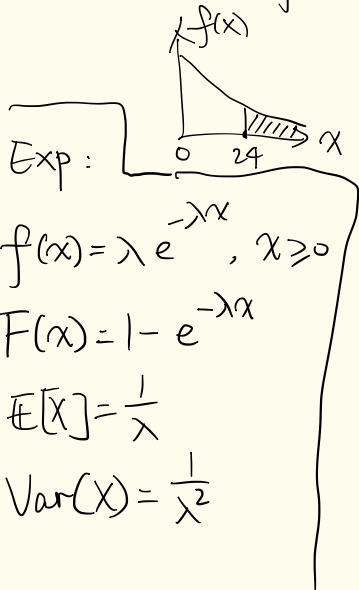 f(x)
0 24 x
Exp:
f(x) = λe^{-λx}, x ≥ 0
F(x) = 1 - e^{-λx}
𝔼[X] = 1/λ
Var(X) = 1/λ²